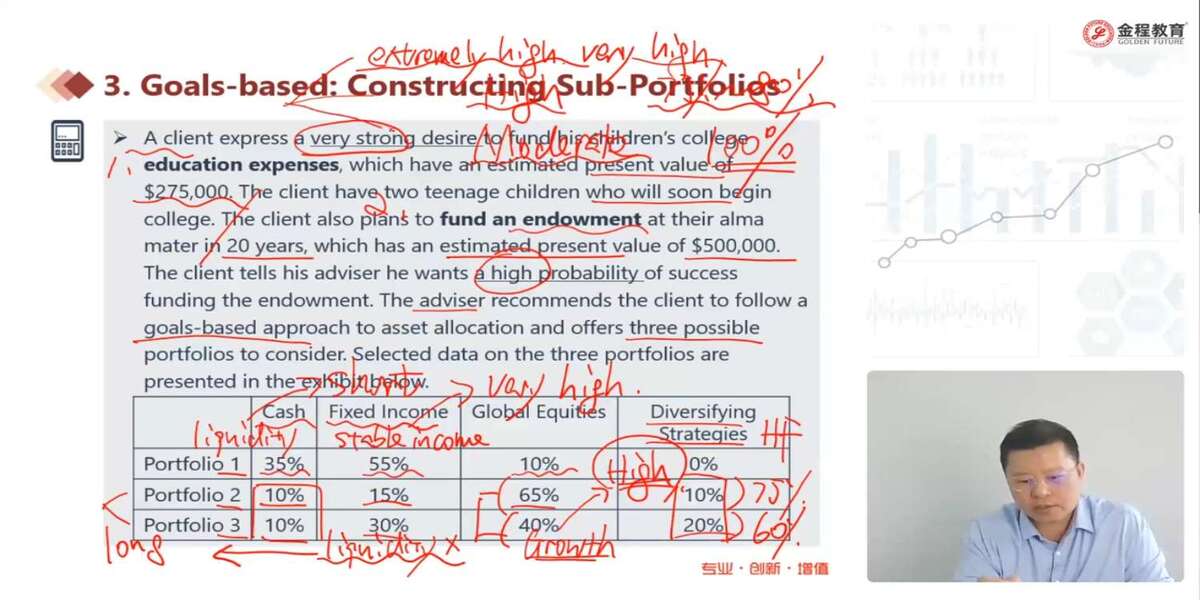 金程教育
GOLDEN FUTURE
extremely high very high
3. Goals-based: Constructing Sub-Portfolios
High
80%
Moderate
100%
A client express a very strong desire to fund his children's college
1.
education expenses, which have an estimated present value of
$275,000. The client have two teenage children who will soon begin
2.
college. The client also plans to fund an endowment at their alma
mater in 20 years, which has an estimated present value of $500,000.
The client tells his adviser he wants a high probability of success
funding the endowment. The adviser recommends the client to follow a
goals-based approach to asset allocation and offers three possible
portfolios to consider. Selected data on the three portfolios are
presented in the exhibit below.
short
very high.
Cash Fixed Income Global Equities Diversifying Strategies
liquidity stable income HF
Portfolio 1 35% 55% 10% 0%
High
Portfolio 2 10% 15% 65% 10% 75%
Portfolio 3 10% 30% 40% 20% 60%
long
liquidity ×
Growth
专业·创新·增值